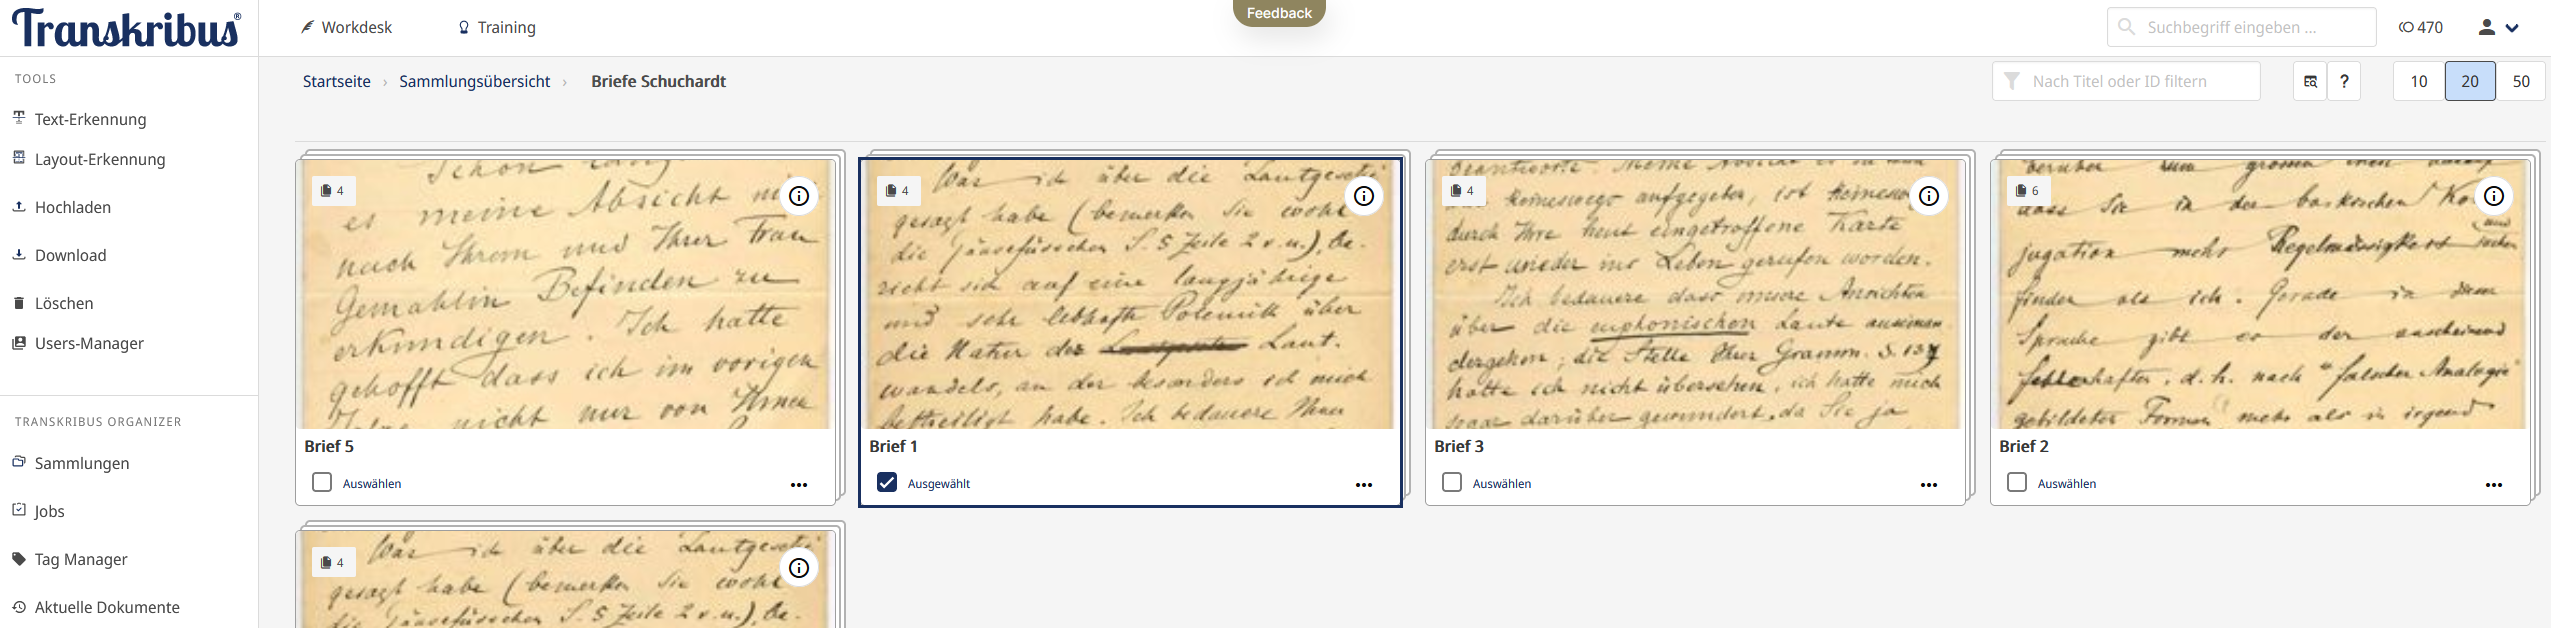 Transkribus®
Workdesk
Training
Feedback
Suchbegriff eingeben ...
470
TOOLS
Text-Erkennung
Layout-Erkennung
Hochladen
Download
Löschen
Users-Manager
TRANSKRIBUS ORGANIZER
Sammlungen
Jobs
Tag Manager
Aktuelle Dokumente
Startseite › Sammlungsübersicht › Briefe Schuchardt
Nach Titel oder ID filtern
?
10 20 50
4
Schon
es meine Absicht
nach Ihrem und Ihrer Frau
Gemahlin Befinden zu
erkundigen. Ich hatte
gehofft dass ich im vorigen
nicht nur von Ihnen
Brief 5
Auswählen
4
Was ich über die Lautgeschi
gesagt habe (bemerken Sie wohl
die Gänsefüsschen S. 5 Zeile 2 v. u.), be-
zieht sich auf eine langjährige
und sehr lebhafte Polemik über
die Natur des Laut-
wandels, an der besonders ich mich
betheiligt habe. Ich bedauere Ihnen
Brief 1
Ausgewählt
4
beantworte. Meine Absicht
keineswegs aufgegeben, ist keinesw
durch Ihre heut eingetroffene Karte
erst wieder ins Leben gerufen worden.
Ich bedauere dass unsere Ansichten
über die euphonischen Laute auseinan-
dergehen; die Stelle Ihrer Gramm. S. 137
hatte ich nicht übersehen, ich hatte mich
sogar darüber gewundert, da Sie ja
Brief 3
Auswählen
6
darüber zum grossen
dass Sie in der baskischen Ko
und
jugation mehr Regelmässigkeit suchen
finden als ich. Gerade in dieser
Sprache gibt es der anscheinend
fehlerhafter, d. h. nach "falscher Analogie"
gebildeter Formen mehr als in irgend
Brief 2
Auswählen
4
Was ich über die Lautgeschi
gesagt habe (bemerken Sie wohl
die Gänsefüsschen S. 5 Zeile 2 v. u.), be-